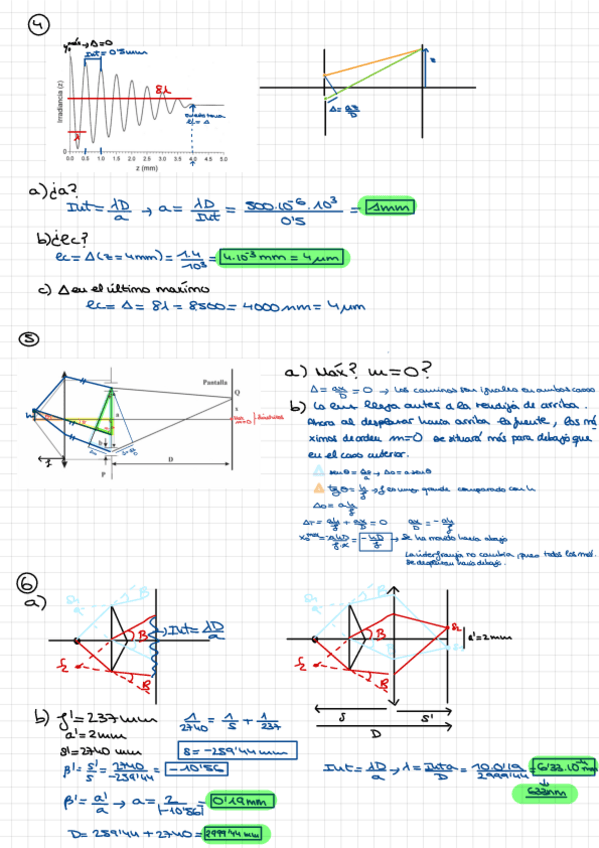 4
ymáx → Δ=0
Int = 0'5mm
8λ
Irradiancia (z)
0
0.0 0.5 1.0 1.5 2.0 2.5 3.0 3.5 4.0 4.5 5.0
z (mm)
Δ = az/D
z
a) ¿a?
Int = λD/a → a = λD/Int = 500·10⁻⁶·10³/0'5 = 1mm
b) ¿lc?
lc = Δ(z=4mm) = 1·4/10³ = 4·10⁻³ mm = 4 μm
c) Δ en el último maximo
lc = Δ = 8λ = 8500 = 4000 nm = 4 μm
5
Pantalla
Q
D
P
a) Máx? m=0?
Δ = ax/D = 0 → los caminos son iguales en ambos casos
b) La luz llega antes a la rendija de arriba.
Ahora al desplazar hacia arriba la fuente, los má
ximos de orden m=0 se situará más para debajo que
en el caso anterior.
senθ = Δo/a → Δo = a senθ
tgθ = h/f → f es muy grande comparado con h
Δo = ah/f
ΔT = ah/f + ax/D = 0 ax/D = -ah/f
= -hD/f → Se ha movido hacia abajo
La interfranja no cambia, pues todos los máx.
se desplazan hacia debajo.
6
a)
B
B
Int = λD/a
B
B
a'=2mm
s
s'
D
b) f'=237mm
a'=2mm
s'=2740 mm
1/2740 = 1/s + 1/237
s = -259'44mm
β' = s'/s = 2740/-259'44 = -10'56
β' = a'/a → a = 2/|-10'56| = 0'19mm
D = 259'44 + 2740 = 2999'44 mm
Int = λD/a → λ = Int a/D = 10·0'19/2999'44 = 6'33·10⁻⁴ mm
633nm